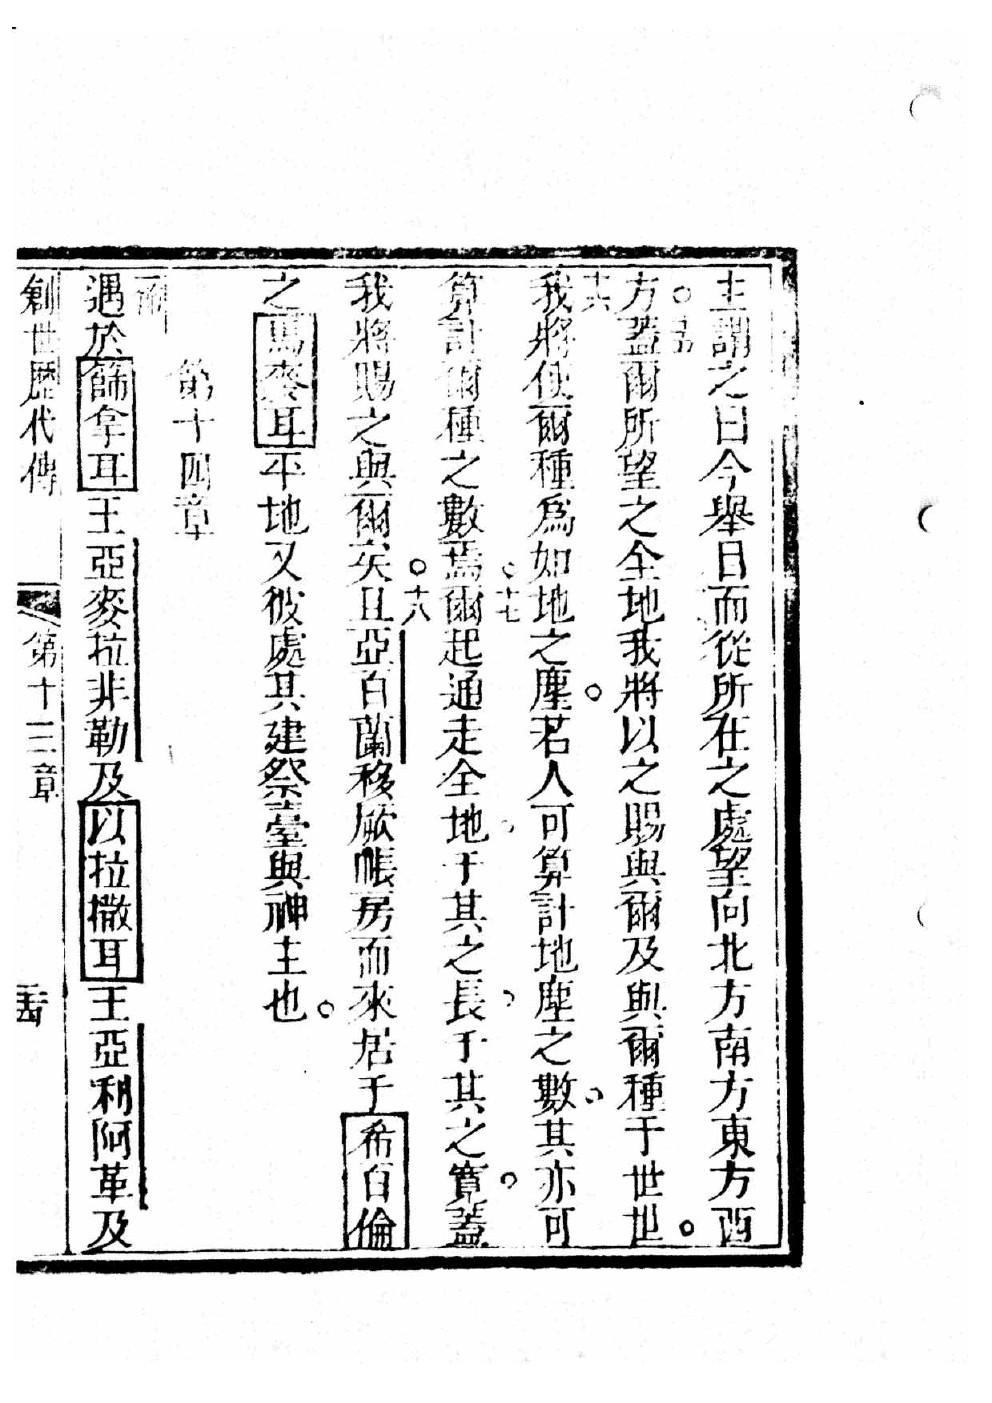 主謂之曰今舉目而從所在之處望向北方南方東方西
方○十五蓋爾所望之全地我將以之賜與爾及與爾種于世世○
十六我將使爾種為如地之塵○若人可算計地塵之數其亦可
算計爾種之數焉○十七爾起通走全地于其之長于其之寬蓋
我將賜之與爾矣○十八且亞百蘭移厥帳房而來居于希百倫
之馬麥耳平地又彼處其建祭臺與神主也○
第十四章
一爾遇於篩拿耳王亞麥拉非勒及以拉撒耳王亞利阿革及
創世歷代傳 第十三章